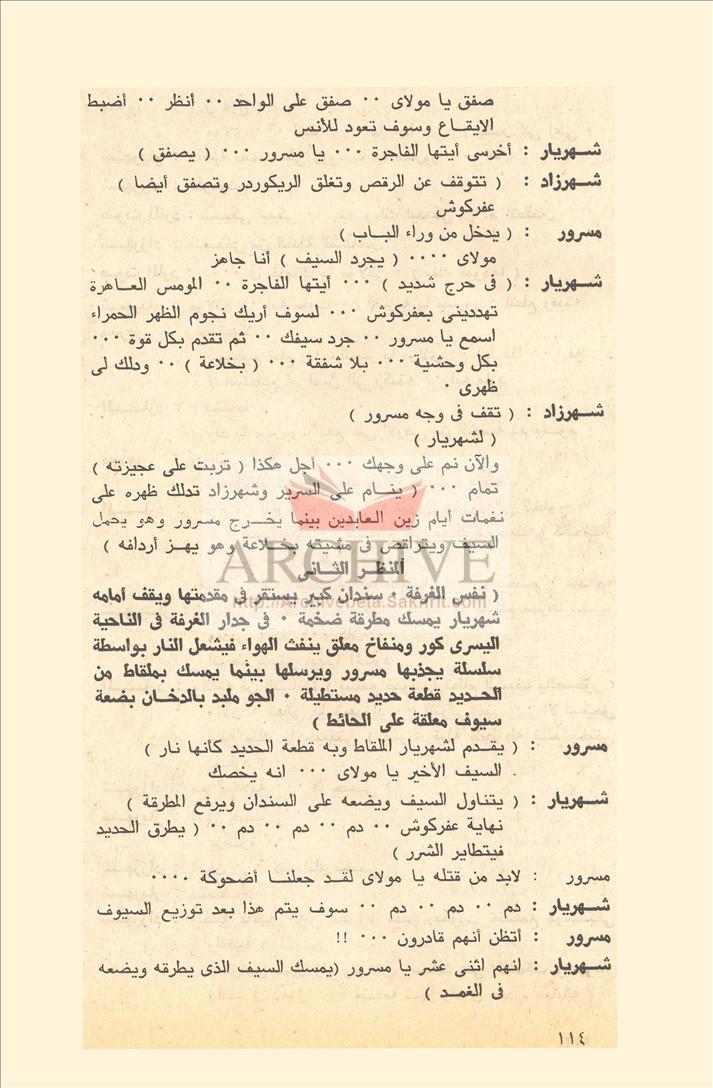 صفق يا مولاى ٠٠ صفق على الواحد ٠٠ أنظر ٠٠ أضبط
الايقاع وسوف تعود للأنس
شهريار : أخرسى أيتها الفاجرة ٠٠٠ يا مسرور ٠٠٠ ( يصفق )
شهرزاد : ( تتوقف عن الرقص وتغلق الريكوردر وتصفق أيضا )
عفركوش
مسرور : ( يدخل من وراء الباب )
مولاى ٠٠٠٠ ( يجرد السيف ) أنا جاهز
شهريار : ( فى حرج شديد ) ٠٠٠ أيتها الفاجرة ٠٠ المومس العاهرة
تهددينى بعفركوش ٠٠٠ لسوف أريك نجوم الظهر الحمراء
اسمع يا مسرور ٠٠ جرد سيفك ٠٠ ثم تقدم بكل قوة ٠٠٠
بكل وحشية ٠٠٠ بلا شفقة ٠٠٠ ( بخلاعة ) ٠٠ ودلك لى
ظهرى ٠
شهرزاد : ( تقف فى وجه مسرور )
( لشهريار )
والآن نم على وجهك ٠٠٠ أجل هكذا ( تربت على عجيزته )
تمام ٠٠٠ ( ينام على السرير وشهرزاد تدلك ظهره على
نغمات أيام زين العابدين بينما يخرج مسرور وهو يحمل
السيف ويتراقص فى مشيته بخلاعة وهو يهز أردافه )
ARCHIVE
المنظر الثانى
( نفس الغرفة ٠ سندان كبير يستقر فى مقدمتها ويقف أمامه
http://Archivebeta.Sakhrit.com
شهريار يمسك مطرقة ضخمة ٠ فى جدار الغرفة فى الناحية
اليسرى كور ومنفاخ معلق ينفث الهواء فيشعل النار بواسطة
سلسلة يجذبها مسرور ويرسلها بينما يمسك بملقاط من
الحديد قطعة حديد مستطيلة ٠ الجو ملبد بالدخان بضعة
سيوف معلقة على الحائط )
مسرور : ( يقدم لشهريار الملقاط وبه قطعة الحديد كأنها نار )
السيف الأخير يا مولاى ٠٠٠ انه يخصك
شهريار : ( يتناول السيف ويضعه على السندان ويرفع المطرقة )
نهاية عفركوش ٠٠ دم ٠٠ دم ٠٠ دم ٠٠ ( يطرق الحديد
فيتطاير الشرر )
مسرور : لابد من قتله يا مولاى لقد جعلنا أضحوكة ٠٠٠٠
شهريار : دم ٠٠ دم ٠٠ دم ٠٠ سوف يتم هذا بعد توزيع السيوف
مسرور : أتظن أنهم قادرون ٠٠٠ !!
شهريار : انهم اثنى عشر يا مسرور (يمسك السيف الذى يطرقه ويضعه
فى الغمد )
١١٤